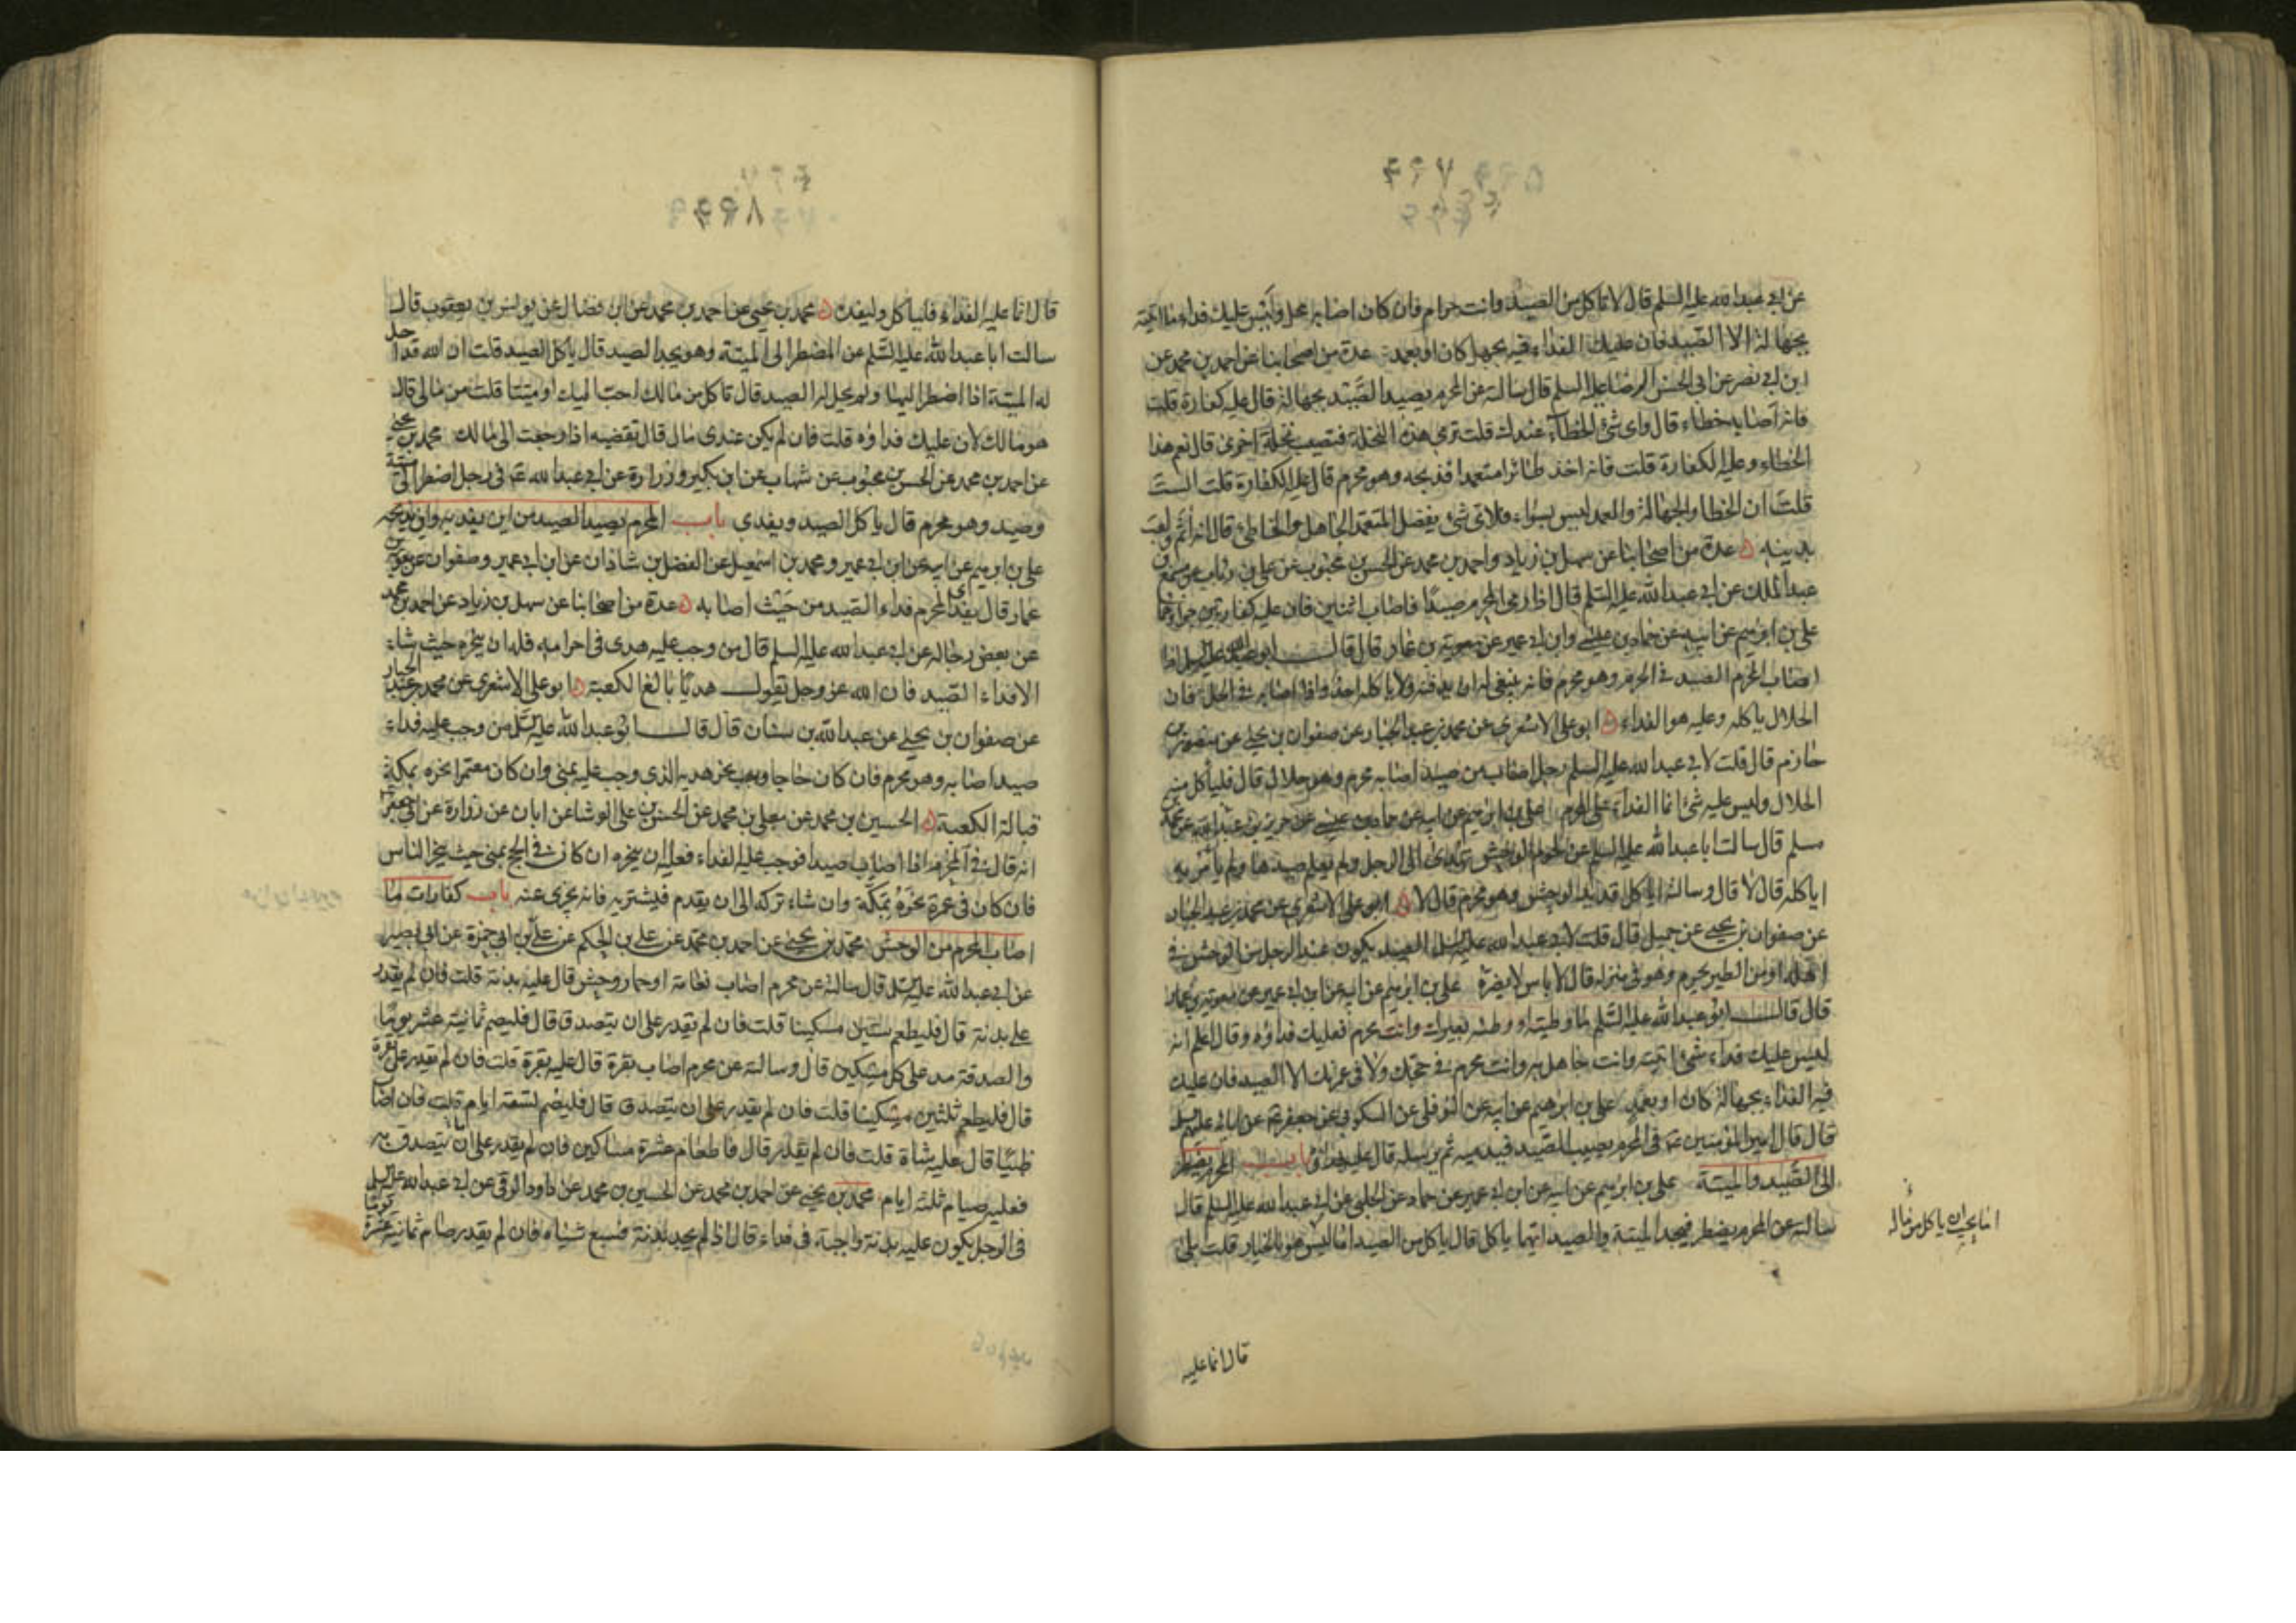 عن ابي عبدالله عليه السلم قال لا تاكل من الصيد وانت حرام فان كان اصابه محل وليس عليك فداء ما اتيته
بجهالة الا الصيد فان عليك الفداء فيه بجهل كان او بعمد عدة من اصحابنا عن احمد بن محمد عن
ابن ابي نصر عن ابي الحسن الرضا عليه السلم قال سالته عن المحرم يصيد الصيد بجهالة قال عليه كفارة قلت
فانه اصابه خطاء قال واى شئ الخطاء عندك قلت ترمى هذه النخلة فتصيب نخلة اخرى قال نعم هذا
الخطاء وعليه الكفارة قلت فانه اخذ طائرا متعمدا فذبحه وهو محرم قال عليه الكفارة قلت الست
قلت ان الخطا والجهالة والعمد ليس بسواء فلاى شئ يفضل المتعمد الجاهل والخاطئ قال انه اثم ولعب
بدينه عدة من اصحابنا عن سهل بن زياد واحمد بن محمد عن الحسن بن محبوب عن علي بن رئاب عن مسمع بن
عبدالملك عن ابي عبدالله عليه السلم قال اذا رمى المحرم صيدا فاصاب اثنين فان عليه كفارتين جزاوهما
على بن ابرهيم عن ابيه عن حماد بن عيسى وابن ابي عمير عن معوية بن عمار قال قال ابوعبدالله عليه السلم اذا
اصاب المحرم الصيد فى الحرم وهو محرم فانه ينبغى له ان يدفنه ولا ياكله احد واذا اصابه فى الحل فان
الحلال ياكله وعليه هو الفداء ابو على الاشعرى عن محمد بن عبد الجبار عن صفوان بن يحيى عن منصور بن
حازم قال قلت لابي عبدالله عليه السلم رجل اصاب من صيد اصابه محرم وهو حلال قال فلياكل منه
الحلال وليس عليه شئ انما الفداء على المحرم على بن ابرهيم عن ابيه عن حماد بن عيسى عن حريز بن عبدالله عن محمد بن
مسلم قال سالت ابا عبدالله عليه السلم عن لحوم الوحش تهدى الى الرجل ولم يعلم صيدها ولم يامر به
اياكله قال لا قال وسالته اياكل قديد الوحش وهو محرم قال لا ابو على الاشعرى عن محمد بن عبد الجبار
عن صفوان بن يحيى عن جميل قال قلت لابي عبدالله عليه السلم الصيد يكون عند الرجل من الوحش فى
اهله او من الطير يحرم وهو فى منزله قال لا باس لا يضره على بن ابرهيم عن ابيه عن ابن ابي عمير عن معوية بن عمار
قال قال ابو عبدالله عليه السلم ما وطيته او وطئه بعيرك وانت محرم فعليك فداؤه وقال اعلم انه
ليس عليك فداء شئ اتيته وانت جاهل به وانت محرم فى حجك ولا فى عمرتك الا الصيد فان عليك
فيه الفداء بجهالة كان او بعمد على بن ابرهيم عن ابيه عن النوفلى عن السكونى عن جعفر عن ابائه عليهم السلم
قال قال امير المؤمنين فى المحرم يصيب الصيد فيدميه ثم يرسله قال عليه جزاؤه باب المحرم يضطر
الى الصيد والميتة على بن ابرهيم عن ابيه عن ابن ابي عمير عن حماد عن الحلبى عن ابي عبدالله عليه السلم قال
سالته عن المحرم يضطر فيجد الميتة والصيد ايهما ياكل قال ياكل من الصيد اما ليس هو بالخيار قلت بلى
اما يحب ان ياكل من ماله
قال انما عليه
قال انما عليه الفداء فلياكل وليفده محمد بن يحيى عن احمد بن محمد عن ابن فضال عن يونس بن يعقوب قال
سالت ابا عبدالله عليه السلم عن المضطر الى الميتة وهو يجد الصيد قال ياكل الصيد قلت ان الله قد احل
له الميتة اذا اضطر اليها ولم يحل له الصيد قال تاكل من مالك احب اليك او ميتا قلت من مالى قال
هو مالك لان عليك فداؤه قلت فان لم يكن عندى مال قال تقضيه اذا رجعت الى مالك محمد بن يحيى
عن احمد بن محمد عن الحسن بن محبوب عن شهاب عن ابن بكير وزرارة عن ابي عبدالله فى رجل اضطر الى ميتة
وصيد وهو محرم قال ياكل الصيد ويفدى باب المحرم يصيد الصيد من اين يفديه واين يذبحه
على بن ابرهيم عن ابيه عن ابن ابي عمير ومحمد بن اسمعيل عن الفضل بن شاذان عن ابن ابي عمير وصفوان عن معوية بن
عمار قال يفدى المحرم فداء الصيد من حيث اصابه عدة من اصحابنا عن سهل بن زياد عن احمد بن محمد
عن بعض رجاله عن ابي عبدالله عليه السلم قال من وجب عليه هدى فى احرامه فله ان ينحره حيث شاء
الا فداء الصيد فان الله عز وجل يقول هديا بالغ الكعبة ابو على الاشعرى عن محمد بن عبد الجبار
عن صفوان بن يحيى عن عبدالله بن سنان قال قال ابو عبدالله عليه السلم من وجب عليه فداء
صيد اصابه وهو محرم فان كان حاجا وجب نحر هديه الذى وجب عليه بمنى وان كان معتمرا نحره بمكة
قبالة الكعبة الحسين بن محمد عن معلى بن محمد عن الحسن بن على الوشا عن ابان عن زرارة عن ابي جعفر
انه قال فى المحرم اذا اصاب صيدا فوجب عليه الفداء فعليه ان ينحره ان كان فى الحج بمنى حيث ينحر الناس
فان كان فى عمرة نحره بمكة وان شاء تركه الى ان يقدم فيشتريه فانه يجزى عنه باب كفارات ما
اصاب المحرم من الوحش محمد بن يحيى عن احمد بن محمد عن على بن الحكم عن على بن ابي حمزة عن ابي بصير
عن ابي عبدالله عليه السلم قال سالته عن محرم اصاب نعامة او حمار وحش قال عليه بدنة قلت فان لم يقدر
على بدنة قال فليطعم ستين مسكينا قلت فان لم يقدر على ان يتصدق قال فليصم ثمانية عشر يوما
والصدقة مد على كل مسكين قال وسالته عن محرم اصاب بقرة قال عليه بقرة قلت فان لم يقدر على بقرة
قال فليطعم ثلثين مسكينا قلت فان لم يقدر على ان يتصدق قال فليصم تسعة ايام قلت فان اصاب
ظبيا قال عليه شاة قلت فان لم يقدر قال فاطعام عشرة مساكين فان لم يقدر على ما يتصدق به
فعليه صيام ثلثة ايام محمد بن يحيى عن احمد بن محمد عن الحسين بن محمد عن داود الرقى عن ابي عبدالله عليه السلم
فى الرجل يكون عليه بدنة واجبة فى فداء قال اذا لم يجد بدنة فسبع شياه فان لم يقدر صام ثمانية عشر يوما